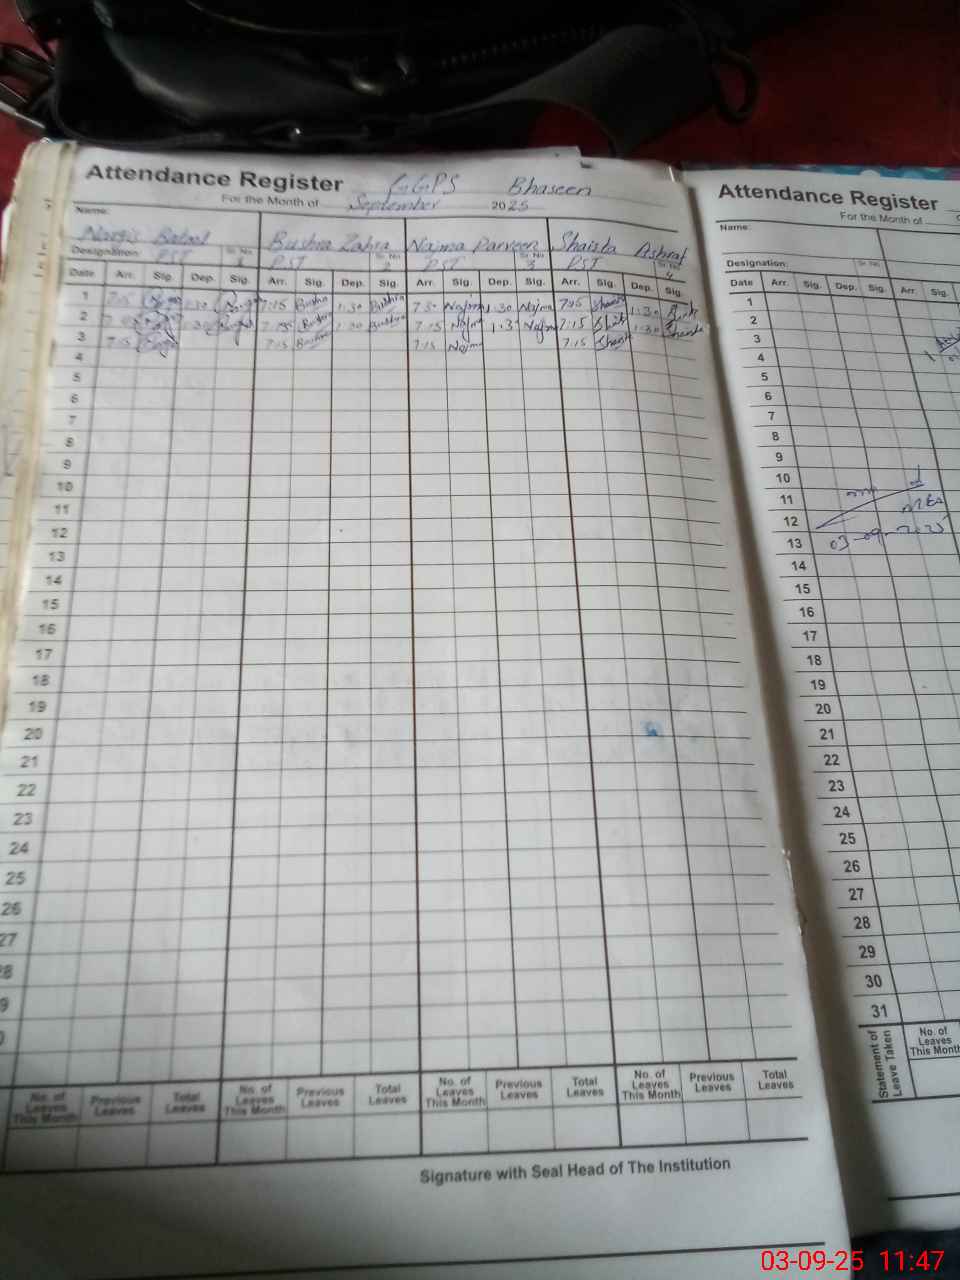 Attendance Register GGPS Bhaseen
For the Month of September 2025
Name:
Nargis Batool Bushra Zahra Najma Parveen Shaista Ashraf
Designation: PST Sr. No. PST Sr. No. 2 PST Sr. No. 3 PST Sr. No. 4
Date Arr. Sig. Dep. Sig. Arr. Sig. Dep. Sig. Arr. Sig. Dep. Sig. Arr. Sig. Dep. Sig.
1 7:15 1:30 7:15 Bushra 1:30 Bushra Najma 1:30 Najma 1:30
2 Bushra 1:30 Bushra 7:15 Najma 1:3 Najma 7:15 1:30
3 7:15 7:15 Bushra 7:15 Najma 7:15
4
5
6
7
8
9
10
11
12
13
14
15
16
17
18
19
20
21
22
23
24
25
26
27
8
9
0
No. of Leaves This Month Previous Leaves Total Leaves No. of Leaves This Month Previous Leaves Total Leaves No. of Leaves This Month Previous Leaves Total Leaves No. of Leaves This Month Previous Leaves Total Leaves
Signature with Seal Head of The Institution
Attendance Register
For the Month of
Name:
Designation: Sr. No.
Date Arr. Sig. Dep. Sig. Arr. Sig.
1
2
3
4
5
6
7
8
9
10
11
12
13 03-09-2025
14
15
16
17
18
19
20
21
22
23
24
25
26
27
28
29
30
31
Statement of Leave Taken
No. of Leaves This Month
03-09-25 11:47